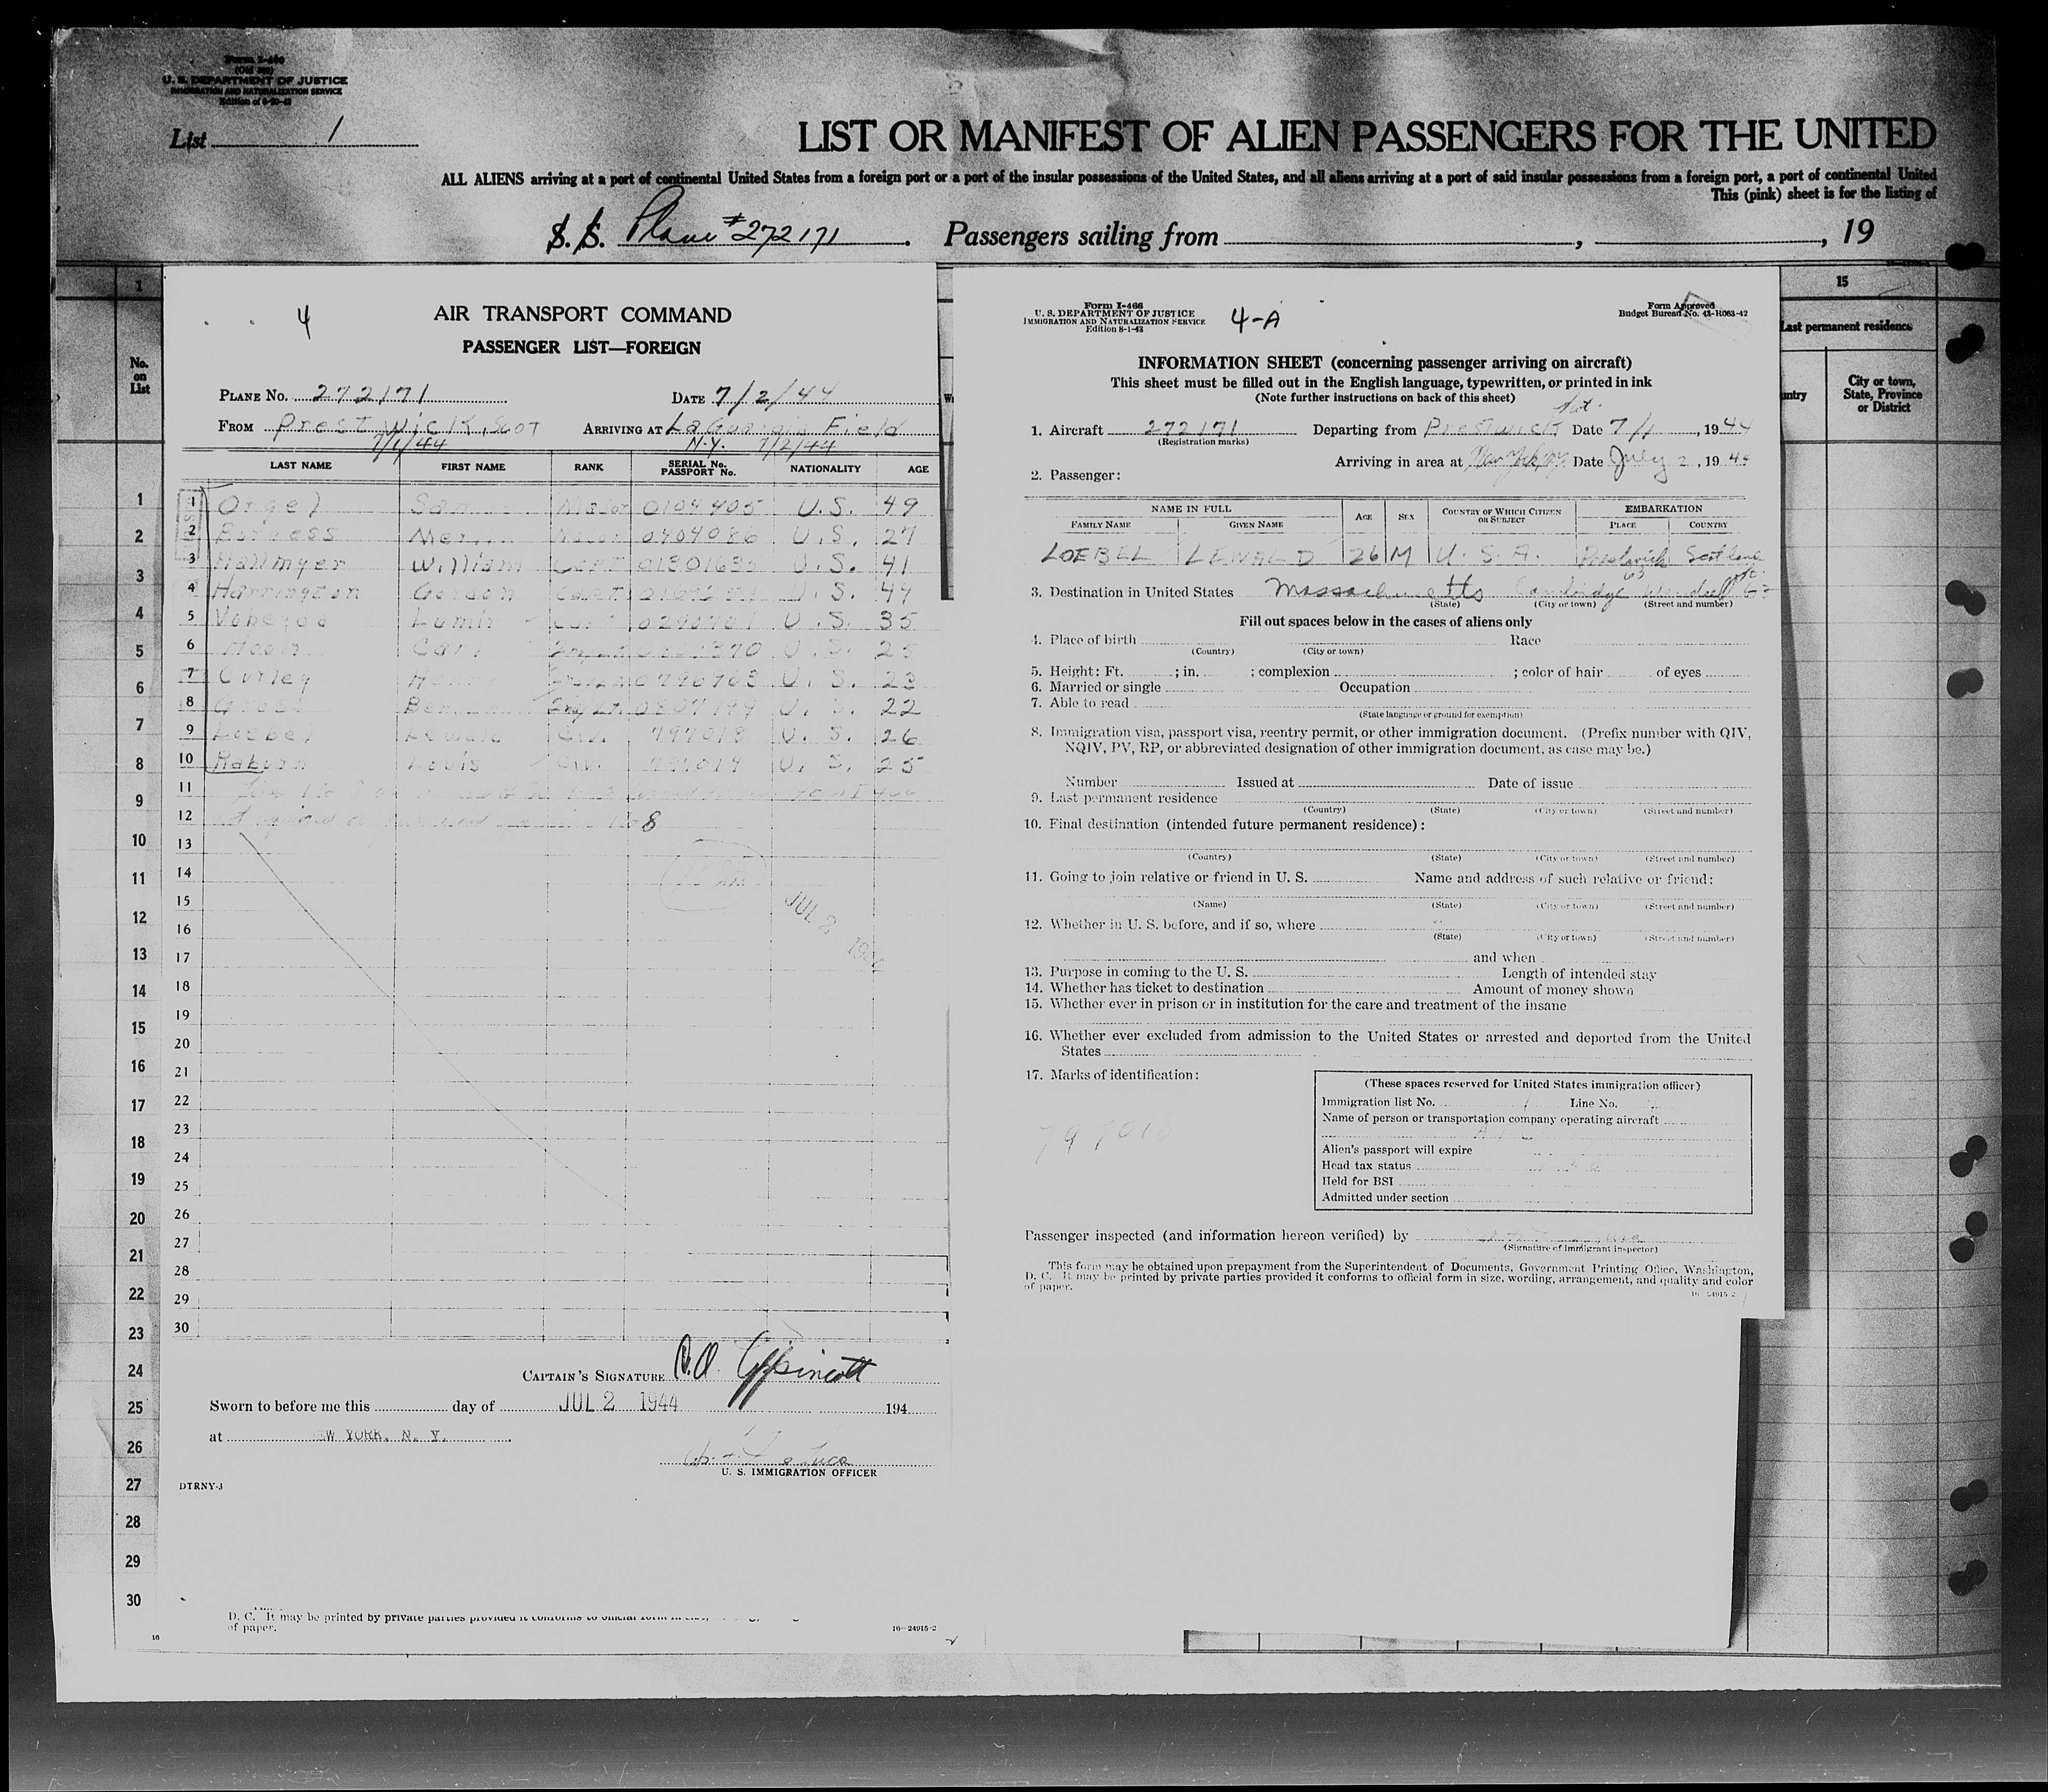 Form I-466
(Old 500)
U. S. DEPARTMENT OF JUSTICE
IMMIGRATION AND NATURALIZATION SERVICE
List 1
LIST OR MANIFEST OF ALIEN PASSENGERS FOR THE UNITED
ALL ALIENS arriving at a port of continental United States from a foreign port or a port of the insular possessions of the United States, and all aliens arriving at a port of said insular possessions from a foreign port, a port of continental United
This (pink) sheet is for the listing of
S. S. Plane #272171. Passengers sailing from , , 19
1
No. on List
15
Last permanent residence
City or town, State, Province or District
4
AIR TRANSPORT COMMAND
PASSENGER LIST—FOREIGN
PLANE No. 272171 DATE 7/2/44
FROM Prestwick, Scot ARRIVING AT LaGuardia Field
7/1/44 N.Y. 7/2/44
LAST NAME FIRST NAME RANK SERIAL No. PASSPORT No. NATIONALITY AGE
1 Orgel Sam Major 0104405 U.S. 49
2 Burgess 0404086 U.S. 27
3 Hallmyer William Capt 41
4 Harrington Gordon Capt U.S.
5 Lumir U.S. 35
6 Carl U.S. 25
7 Curley 0796763 U.S. 23
8 U.S. 22
9 Loebel Lewald Civ. 797018 U.S. 26
10 Raburn Louis Civ. U.S. 25
11
12
13
14
15
16
17
18
19
20
21
22
23
24
25
26
27
28
29
30
JUL 2 1944
CAPTAIN'S SIGNATURE
Sworn to before me this day of JUL 2 1944 194
at NEW YORK, N. Y.
U. S. IMMIGRATION OFFICER
DTRNY-3
D. C. It may be printed by private parties provided it conforms to official form in size,
of paper.
16—24915-2
1
2
3
4
5
6
7
8
9
10
11
12
13
14
15
16
17
18
19
20
21
22
23
24
25
26
27
28
29
30
16
Form I-466
U. S. DEPARTMENT OF JUSTICE
IMMIGRATION AND NATURALIZATION SERVICE
Edition 8-1-43
4-A
Form Approved
Budget Bureau No. 43-R063-42
INFORMATION SHEET (concerning passenger arriving on aircraft)
This sheet must be filled out in the English language, typewritten, or printed in ink
(Note further instructions on back of this sheet)
1. Aircraft 272171 Departing from Prestwick Date 7/1, 1944
(Registration marks)
Arriving in area at New York, N.Y. Date July 2, 1944
2. Passenger:
NAME IN FULL AGE SEX COUNTRY OF WHICH CITIZEN OR SUBJECT EMBARKATION
FAMILY NAME GIVEN NAME PLACE COUNTRY
LOEBEL LEWALD 26 M U. S. A. Prestwick Scotland
3. Destination in United States Massachusetts Cambridge 63 Wendell St.
(State) (City or town) (Street and number)
Fill out spaces below in the cases of aliens only
4. Place of birth Race
(Country) (City or town)
5. Height: Ft. ; in. ; complexion ; color of hair of eyes
6. Married or single Occupation
7. Able to read
(State language or ground for exemption)
8. Immigration visa, passport visa, reentry permit, or other immigration document. (Prefix number with QIV, NQIV, PV, RP, or abbreviated designation of other immigration document, as case may be.)
Number Issued at Date of issue
9. Last permanent residence
(Country) (State) (City or town) (Street and number)
10. Final destination (intended future permanent residence):
(Country) (State) (City or town) (Street and number)
11. Going to join relative or friend in U. S. Name and address of such relative or friend:
(Name) (State) (City or town) (Street and number)
12. Whether in U. S. before, and if so, where
(State) (City or town) (Street and number)
and when
13. Purpose in coming to the U. S. Length of intended stay
14. Whether has ticket to destination Amount of money shown
15. Whether ever in prison or in institution for the care and treatment of the insane
16. Whether ever excluded from admission to the United States or arrested and deported from the United
States
17. Marks of identification:
797018
(These spaces reserved for United States immigration officer)
Immigration list No. 1 Line No.
Name of person or transportation company operating aircraft
Alien's passport will expire
Head tax status
Held for BSI
Admitted under section
Passenger inspected (and information hereon verified) by
(Signature of immigrant inspector)
This form may be obtained upon prepayment from the Superintendent of Documents, Government Printing Office, Washington,
D. C. It may be printed by private parties provided it conforms to official form in size, wording, arrangement, and quality and color
of paper.
16—24915-2